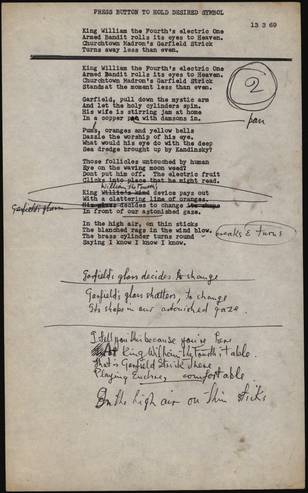 PRESS BUTTON TO HOLD DESIRED SYMBOL
13 3 69
King William the Fourth's electric One
Armed Bandit rolls its eyes to Heaven.
Churchtown Madron's Garfield Strick
Turns away less than even.
King William the Fourth's electric One
Armed Bandit rolls its eyes to Heaven.
Churchtown Madron's Garfield Strick
Stands at the moment less than even.
2
Garfield, pull down the mystic arm
And let the holy cylinders spin.
His wife is stirring jam at home
In a copper pan with damsons in.
pan
Pums, oranges and yellow bells
Dazzle the worship of his eye.
What would his eye do with the deep
Sea dredge brought up by Kandinsky!
Those follicles untouched by human
Eye on the waving moon weed!
Dont put him off. The electric fruit
Clinks into place that he might read.
William the Fourth's
King Willie's device pays out
With a clattering line of oranges.
Garfield's glass
His glass decides to change its shape
In front of our astonished gaze.
In the high air, on thin sticks
The blanched rags in the wind blow.
The brass cylinder turns round
Saying I know I know I know.
breaks & turns
Garfield's glass decides to change
Garfield's glass shatters, to change
Its shape in our astonished gaze.
I tell you this because you're here
At King William the Fourth's table.
That's Garfield Strick there
Playing Euchre, comfortable
In the high air on thin sticks